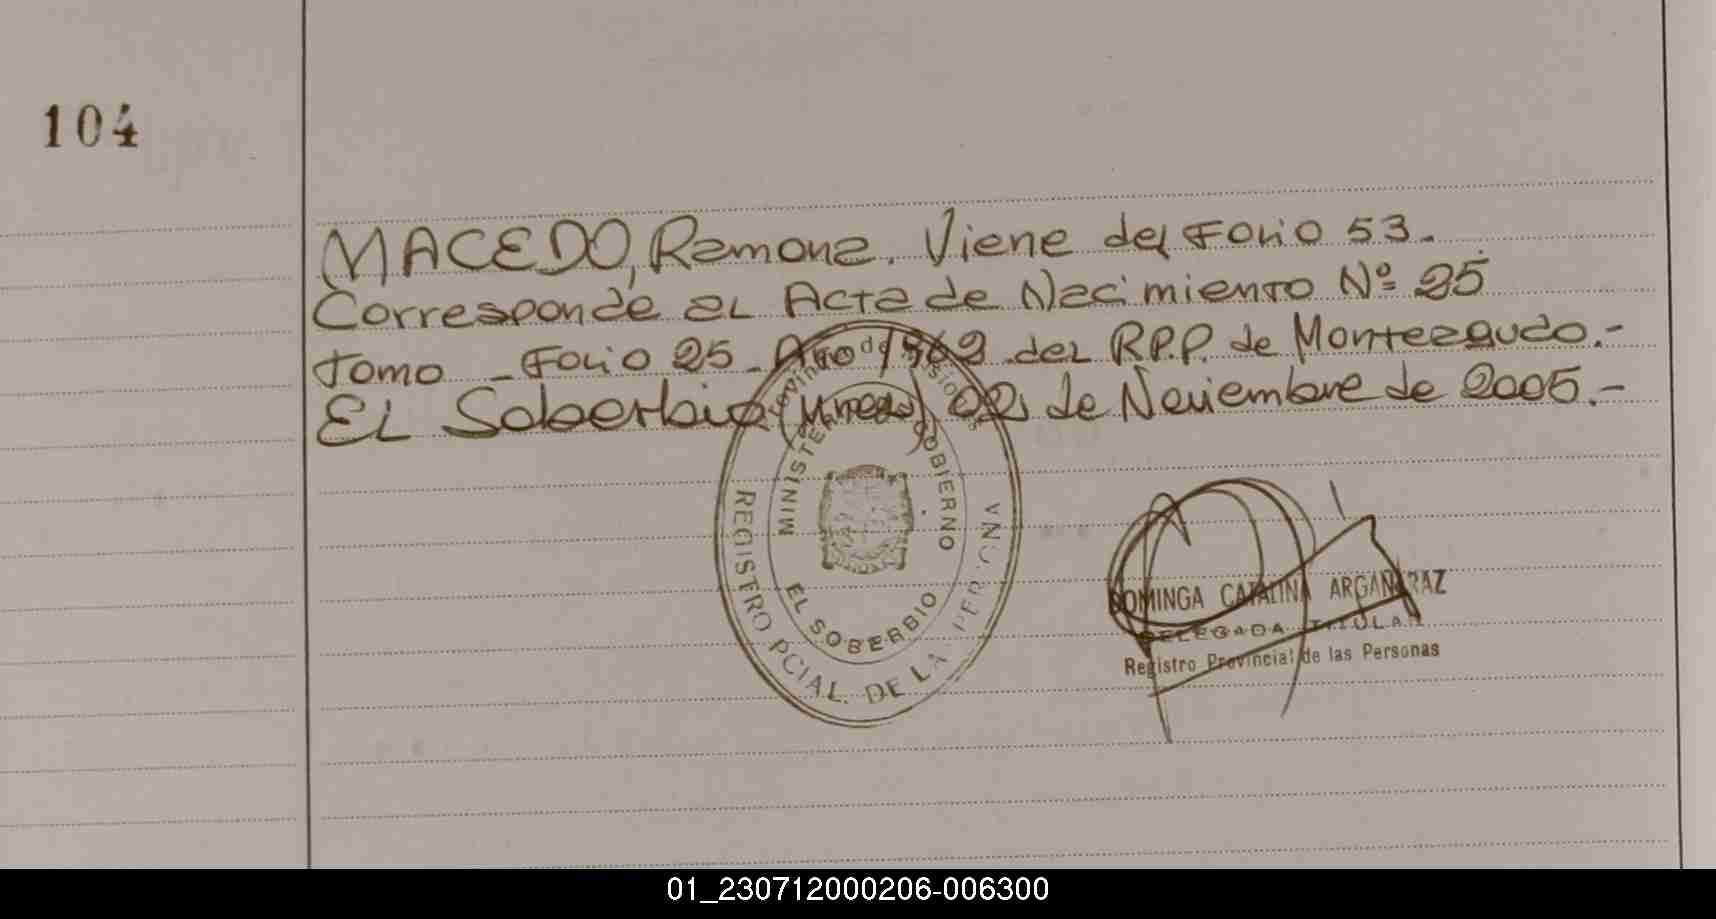 104
MACEDO, Ramona. Viene del Folio 53.
Corresponde al Acta de Nacimiento Nº 25
Tomo _ Folio 25 _ Año 1962 del R.P.P. de Monteagudo.-
El Soberbio (Mnes) 02 de Noviembre de 2005.-
Provincia de Misiones
MINISTERIO GOBIERNO
EL SOBERBIO
REGISTRO PCIAL. DE LA PERSONA
DOMINGA CATALINA ARGAÑARAZ
DELEGADA TITULAR
Registro Provincial de las Personas
01_230712000206-006300